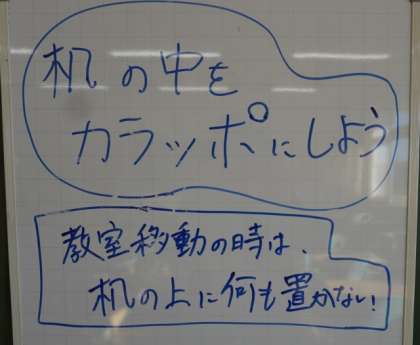 机の中を
カラッポにしよう
教室移動の時は、
机の上に何も置かない!